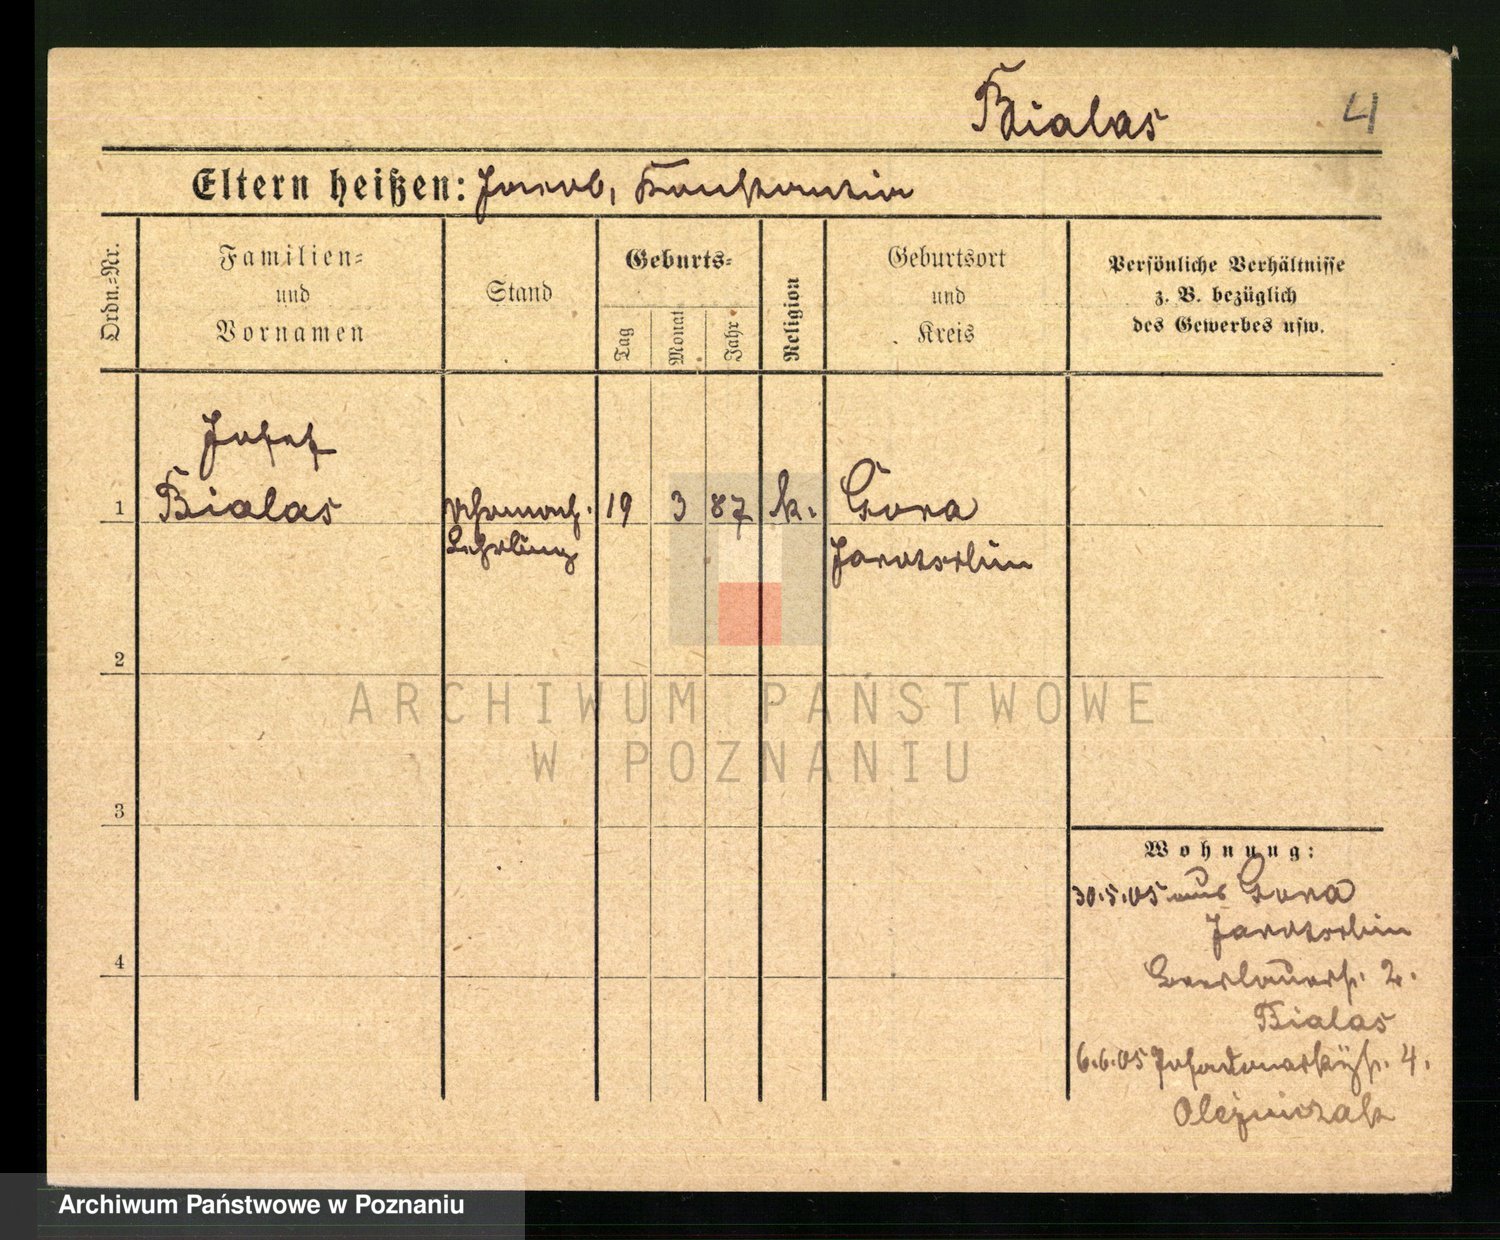 Bialas
4
Eltern heißen: Jacob, Konstantin
Ordn.-Nr.
Familien-
und
Vornamen
Stand
Geburts-
Tag
Monat
Jahr
Religion
Geburtsort
und
Kreis
Persönliche Verhältnisse
z. B. bezüglich
des Gewerbes usw.
Josef
1 Bialas 19 3 87 k. Gora
Lehrling Jarotschin
2
ARCHIWUM PAŃSTWOWE
W POZNANIU
3
Wohnung:
30.5.05 aus Gora
Jarotschin
4
Breslauerstr. 2.
Bialas
6.6.05 4.
Olejniczak
Archiwum Państwowe w Poznaniu